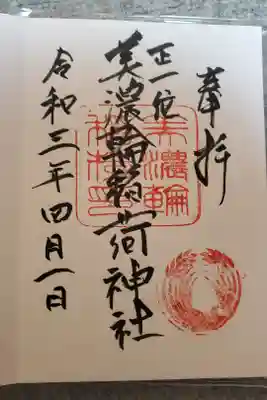 奉拝
正一位
美濃輪稲荷神社
美濃輪
令和三年四月一日